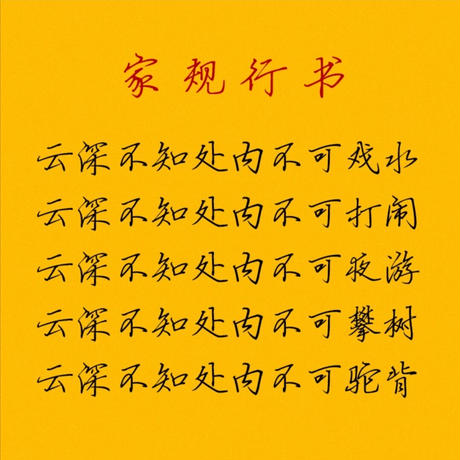 家规行书
云深不知处内不可戏水
云深不知处内不可打闹
云深不知处内不可夜游
云深不知处内不可攀树
云深不知处内不可驼背